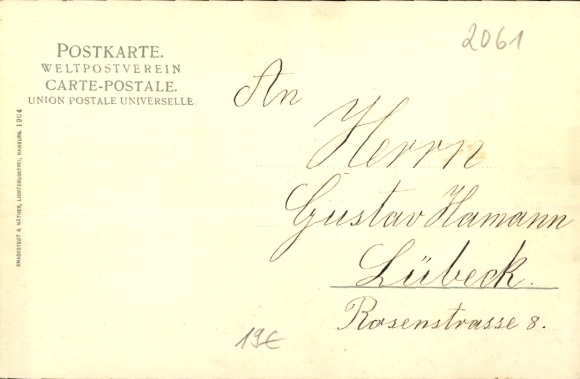 2061
POSTKARTE.
WELTPOSTVEREIN
CARTE-POSTALE.
UNION POSTALE UNIVERSELLE.
KNACKSTEDT & NÄTHER, LICHTDRUCKEREI, HAMBURG. 1904
An
Herrn
Gustav Hamann
Lübeck.
Rosenstrasse 8.
19€